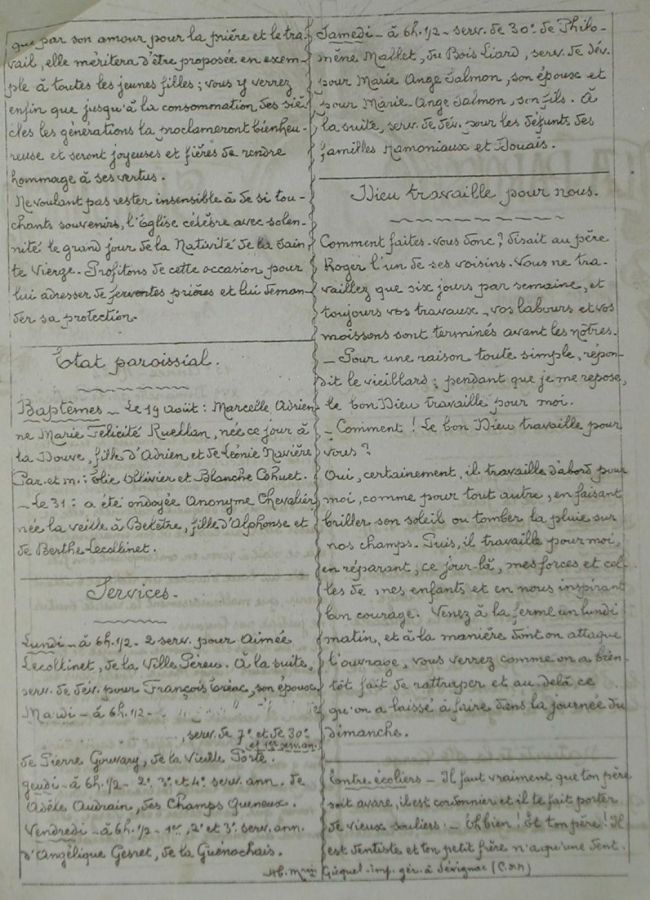 que par son amour pour la prière et le tra-
vail, elle méritera d'être proposée en exem-
ple à toutes les jeunes filles; vous y verrez
enfin que jusqu'à la consommation des siè-
cles les générations la proclameront bienheu-
reuse et seront joyeuses et fières de rendre
hommage à ses vertus.
Ne voulant pas rester insensible à de si tou-
chants souvenirs, l'Église célèbre avec solen-
nité le grand jour de la Nativité de la Sain-
te Vierge. Profitons de cette occasion pour
lui adresser de ferventes prières et lui deman-
der sa protection.
Etat paroissial.
Baptêmes _ Le 19 août: Marcelle Adrien-
ne Marie Félicité Ruellan, née ce jour à
la Douve, fille d'Adrien et de Léonie Navière
Par. et m.: Elie Ollivier et Blanche Cohuet.
_ Le 31: a été ondoyée Anonyme Chevalier
née la veille à Beketre, fille d'Alphonse et
de Berthe Lecollinet.
Services.
Lundi _ à 6h.1/2 _ 2 serv. pour Aimée
Lecollinet, de la Ville Péreu. A la suite,
serv. de dév. pour François Tréac, son épouse
Mardi _ à 6h.1/2 _
serv. de 7e et de 30e
et 1er serv. ann.
de Pierre Gouvary, de la Vieille Porte.
Jeudi _ à 6h.1/2 _ 2e 3e et 4e serv. ann. de
Adèle Audrain, des Champs Queneux.
Vendredi _ à 6h.1/2 _ 1er, 2e et 3e serv. ann.
d'Angélique Gesret, de la Guénochais.
Samedi _ à 6h.1/2 _ serv. de 30e de Philo-
mène Mallet, du Bois Liard, serv. de dév.
pour Marie Ange Salmon, son époux et
pour Marie Ange Salmon, son fils. A
la suite, serv. de dév. pour les défunts des
familles Hamoniaux et Douais.
Dieu travaille pour nous.
Comment faites-vous donc? disait au père
Roger l'un de ses voisins. Vous ne tra-
vaillez que six jours par semaine, et
toujours vos travaux, vos labours et vos
moissons sont terminés avant les nôtres.
_ Pour une raison toute simple, répon-
dit le vieillard; pendant que je me repose,
le bon Dieu travaille pour moi.
_ Comment! Le bon Dieu travaille pour
vous?
Oui, certainement, il travaille d'abord pour
moi, comme pour tout autre, en faisant
briller son soleil ou tomber la pluie sur
nos champs. Puis, il travaille pour moi,
en réparant, ce jour-là, mes forces et cel-
les de mes enfants et en nous inspirant
bon courage. Venez à la ferme un lundi
matin, et à la manière dont on attaque
l'ouvrage, vous verrez comme on a bien-
tôt fait de rattraper et au delà ce
qu'on a laissé à faire dans la journée du
dimanche.
Entre écoliers _ Il faut vraiment que ton père
soit avare, il est cordonnier et il te fait porter
de vieux souliers. _ Eh bien! Et ton père! Il
est dentiste et ton petit frère n'a qu'une dent.
imp. gér. à Sévignac (C.d.N)